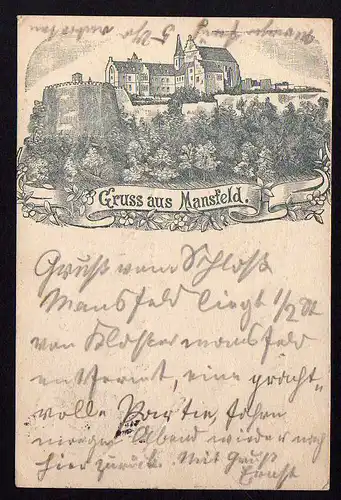 Gruss aus Mansfeld.
Gruß vom Schloß
Mansfeld liegt 1/2 St
von Klostermansfeld
entfernt, eine pracht-
volle Partie, fahre
morgen Abend wieder nach
hier zurück. Mit Gruß
Ernst